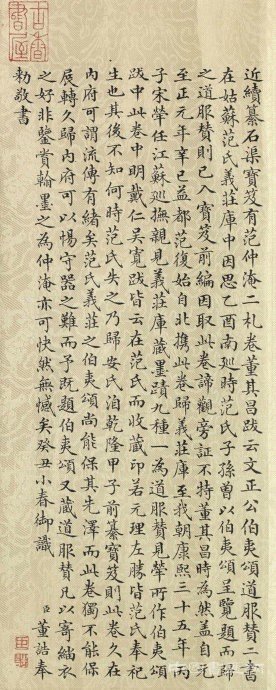 近續纂石渠寶笈有范仲淹二札卷董其昌跋云文正公伯夷頌道服贊二書
在姑蘇范氏義莊庫中因思乙酉南廵時范氏子孫曾以伯夷頌呈覽題而歸
之道服贊則已入寶笈前編因取此卷諦觀旁証不特董其昌時為然蓋自元
至正元年辛巳益都范復始自北携此卷歸義莊庫至我朝康熙三十五年丙
子宋犖任江蘇廵撫親見義莊庫藏墨蹟九種一為道服贊見犖所作伯夷頌
跋中此卷中明戴仁吳寬跋皆云在范氏而收藏印若元理左勝皆范氏奉祀
生也其後不知何時范氏失之乃歸安氏洎乾隆甲子前纂寶笈則此卷久在
內府可謂流傳有緒矣范氏義莊之伯夷頌尚能保其先澤而此卷獨不能保
展轉久歸內府可以惕守器之難而予既題伯夷頌又藏道服贊凡以寄緇衣
之好非鑒賞翰墨之為仲淹亦可快然無憾矣癸丑小春御識
臣董誥奉
勅敬書